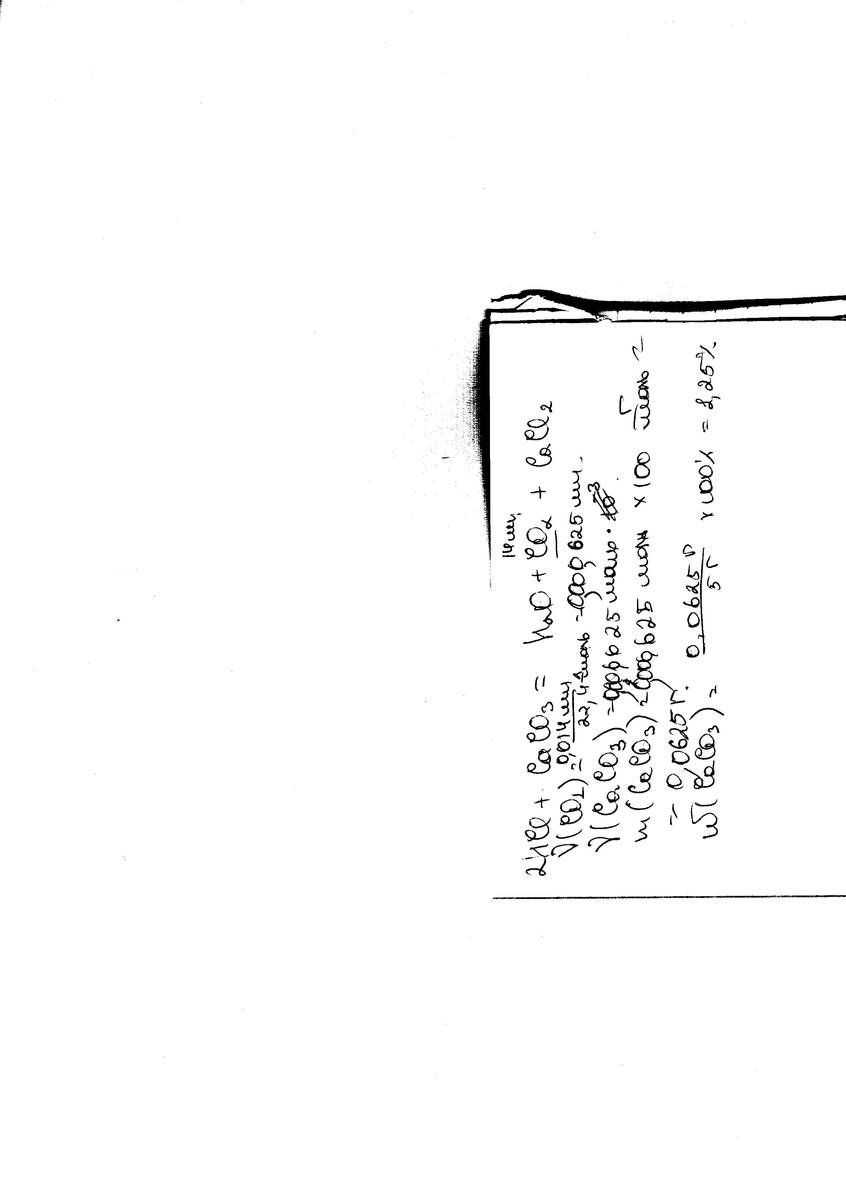 14 мл
2HCl + CaCO3 = H2O + CO2 + CaCl2
ν(CO2) = 0,014 / 22,4 = 0,000625
ν(CaCO3) = 0,000625 моль
m(CaCO3) = 0,000625 моль × 100 г/моль =
= 0,0625 г.
w(CaCO3) = 0,0625 г / 5 г × 100% = 1,25%